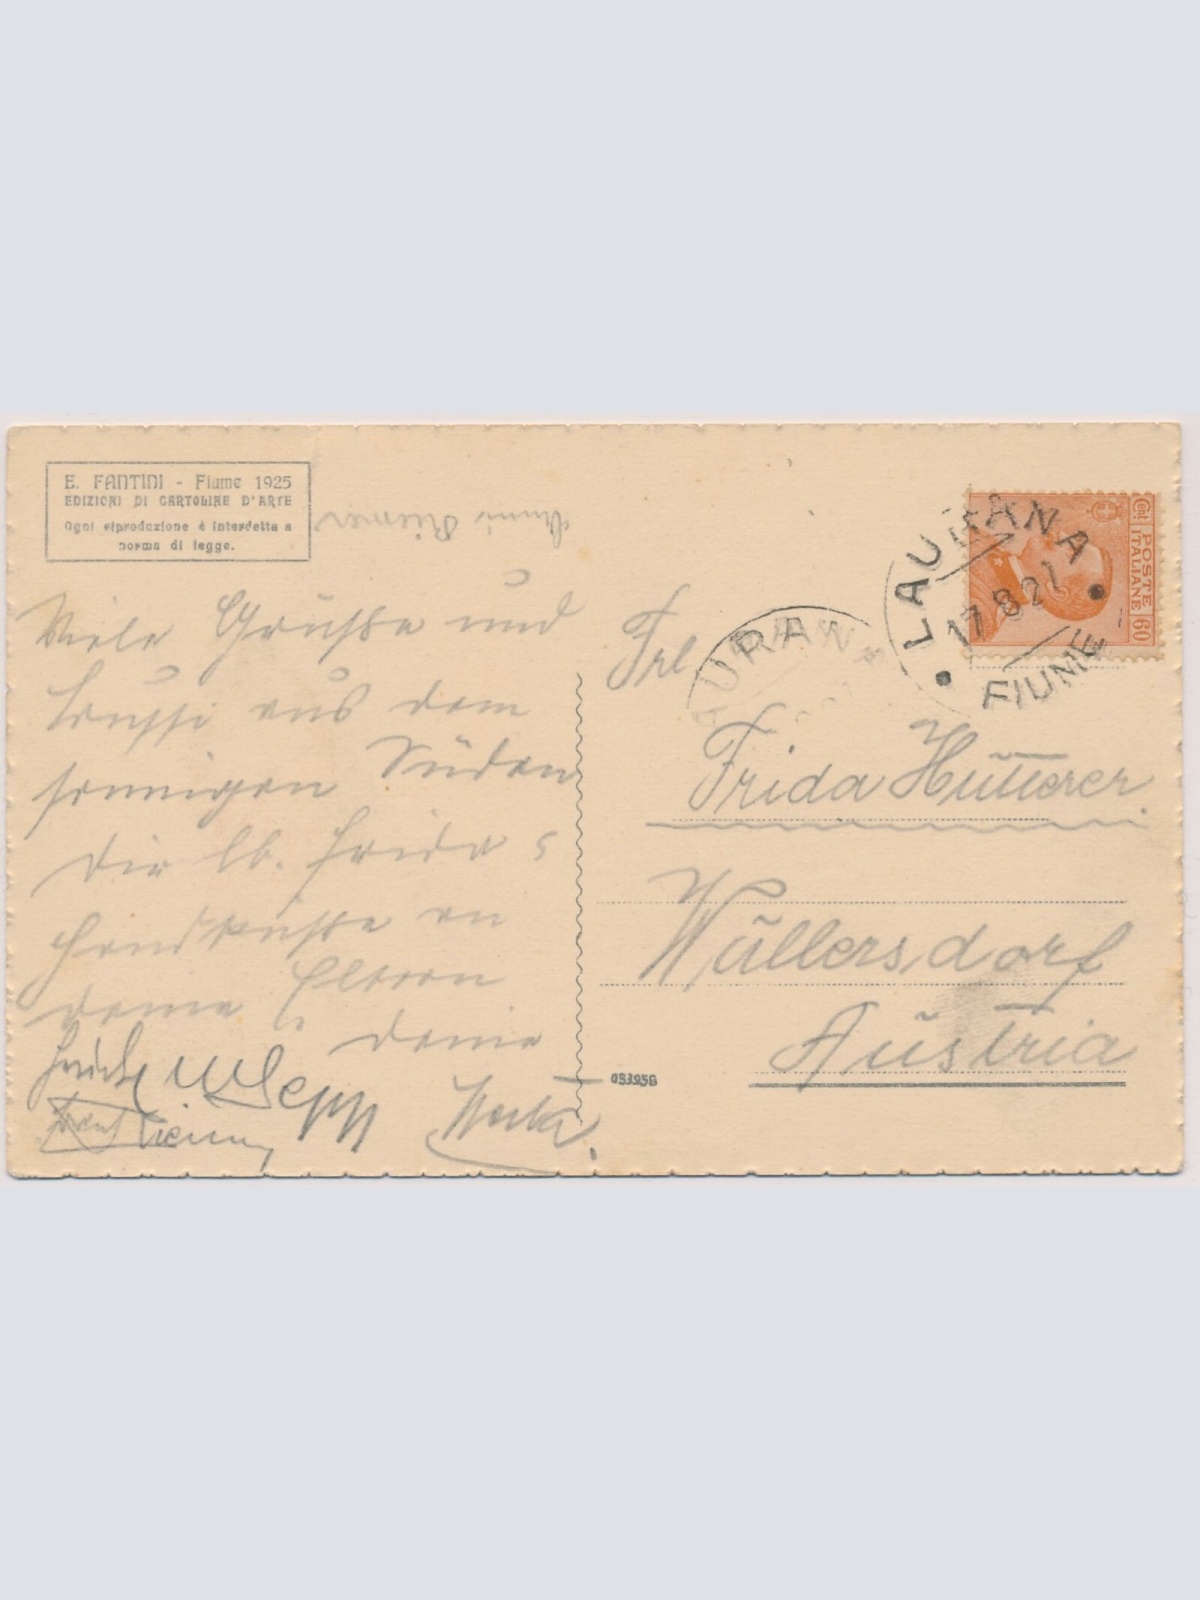 E. FANTINI - Fiume 1925
EDIZIONI DI CARTOLINE D'ARTE
Ogni riproduzione è interdetta a
norma di legge.
Riemer
Viele Grüße und
Bussi aus dem
sonnigen Süden
Dir lb. Frida
Handküsse an
deine Eltern
deine
Sepp
Frl
Frida Hutterer
Wullersdorf
Austria
053956
LAURANA
17.8.27
FIUME
LAURANA
POSTE
ITALIANE
Cent
60